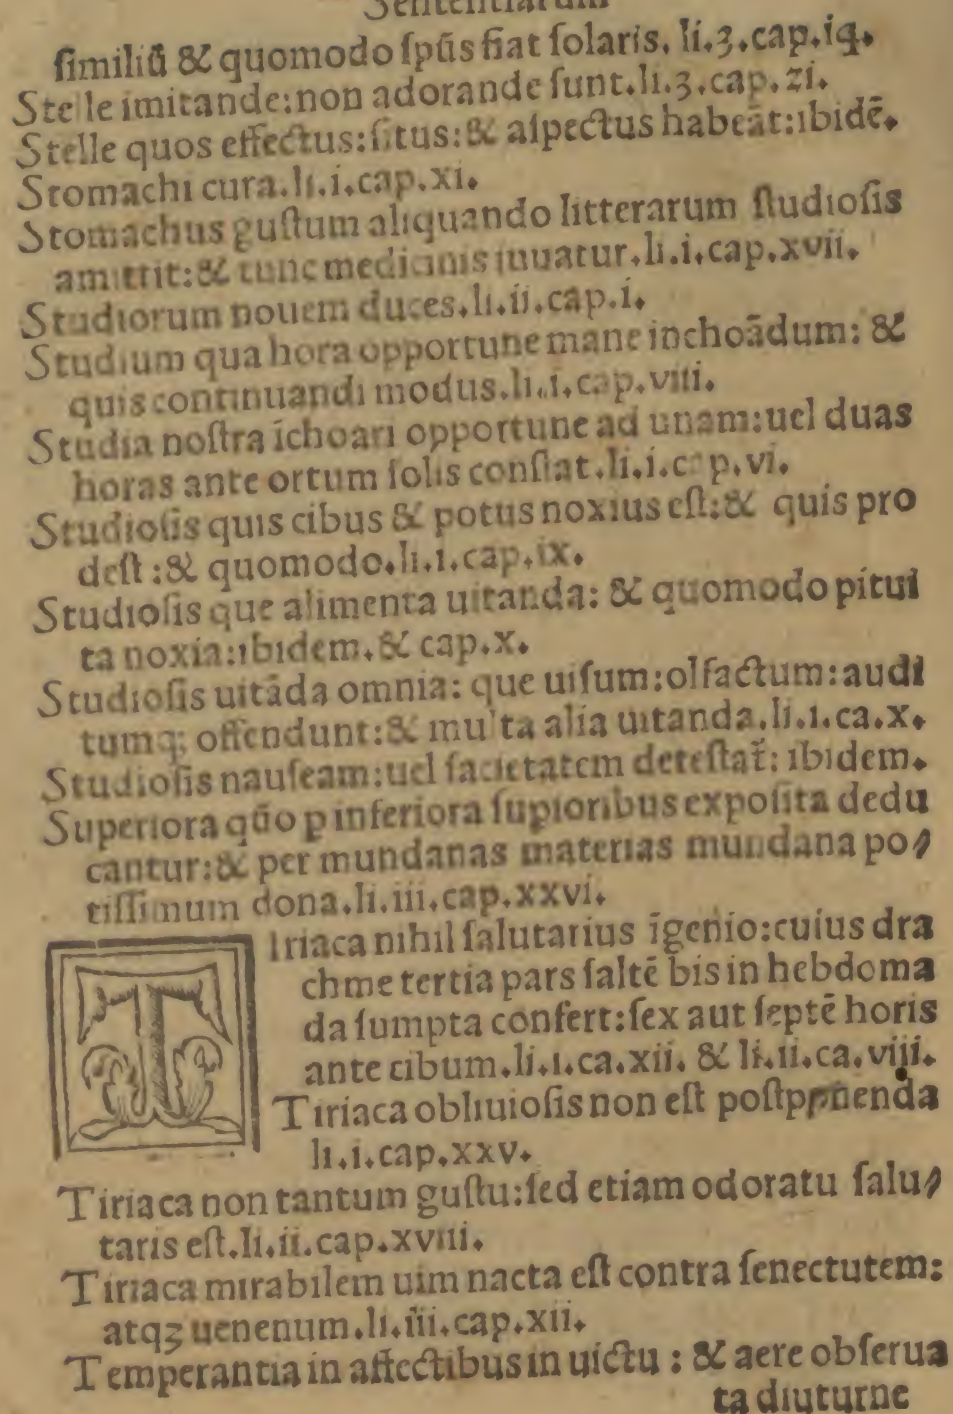 Sententiarum
ſimiliū & quomodo ſpūs fiat ſolaris. li.3.cap.iq.
Stelle imitande:non adorande ſunt.li.3.cap.zi.
Stelle quos effectus:ſitus:& aſpectus habeāt:ibidē.
Stomachi cura.li.i.cap.xi.
Stomachus guſtum aliquando litterarum ſtudioſis
amittit:& tunc medicinis iuuatur.li.i.cap.xvii.
Studiorum nouem duces.li.ii.cap.i.
Studium qua hora opportune mane inchoādum: &
quis continuandi modus.li.i.cap.viii.
Studia noſtra īchoari opportune ad unam:uel duas
horas ante ortum ſolis conſtat.li.i.cap.vi.
Studioſis quis cibus & potus noxius eſt:& quis pro
deſt:& quomodo.li.i.cap.ix.
Studioſis que alimenta uitanda: & quomodo pitui
ta noxia:ibidem.& cap.x.
Studioſis uitāda omnia: que uiſum:olfactum:audi
tumq; offendunt:& multa alia uitanda.li.i.ca.x.
Studioſis nauſeam:uel ſacietatem deteſtat̄: ibidem.
Superiora qūo p inferiora ſupioribus expoſita dedu
cantur:& per mundanas materias mundana po⸗
tiſſimum dona.li.iii.cap.xxvi.
TIriaca nihil ſalutarius īgenio:cuius dra
chme tertia pars ſaltē bis in hebdoma
da ſumpta confert:ſex aut ſeptē horis
ante cibum.li.i.ca.xii. & li.ii.ca.viii.
Tiriaca obliuioſis non eſt poſtpponenda
li.i.cap.xxv.
Tiriaca non tantum guſtu:ſed etiam odoratu ſalu⸗
taris eſt.li.ii.cap.xviii.
Tiriaca mirabilem uim nacta eſt contra ſenectutem:
atqꝫ uenenum.li.iii.cap.xii.
Temperantia in affectibus in uictu : & aere obſerua
ta diuturne